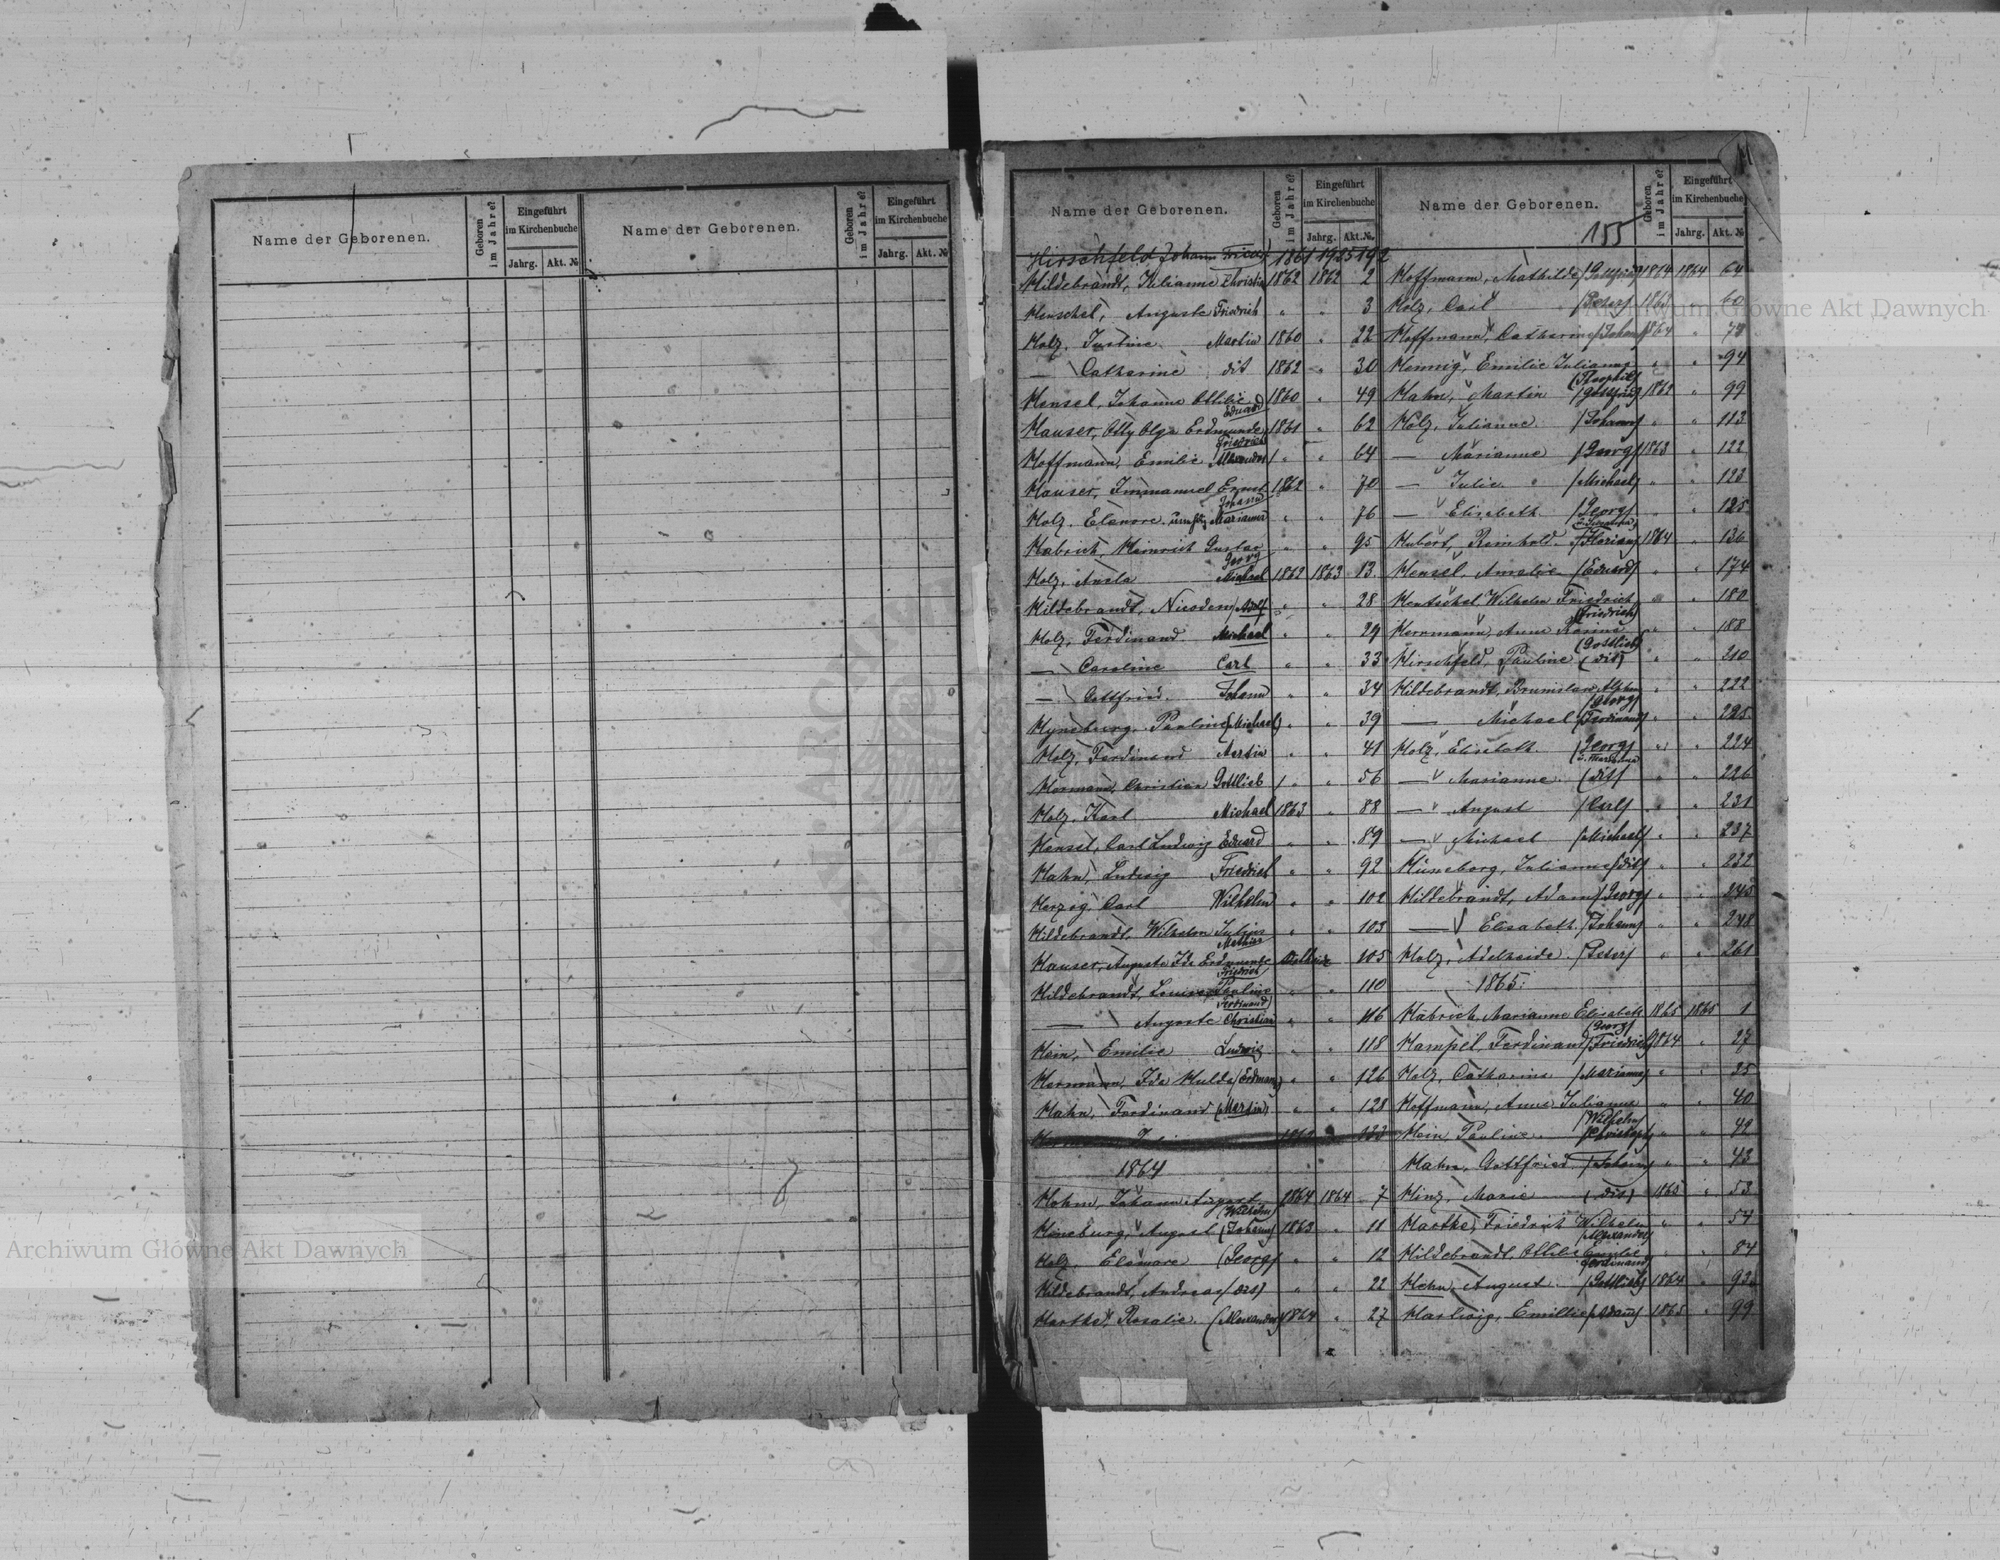 Name der Geborenen.
Geboren im Jahre?
Eingeführt im Kirchenbuche
Jahrg. Akt. №
Name der Geborenen.
Geboren im Jahre?
Eingeführt im Kirchenbuche
Jahrg. Akt. №
Name der Geborenen.
Geboren im Jahre?
Eingeführt im Kirchenbuche
Jahrg. Akt. №
Hirschfeld Johann 1861 1925 192
Hildebrandt, Julianne Christian 1862 1862 2
Henschel, Auguste Friedrich " " 3
Holz, Justine Martin 1860 " 22
— Catharine dit 1862 " 30
Hensel, Johanne Ottilie Eduard 1860 " 49
Hauser, Otty Olga Erdmunde Friedrich 1861 " 62
Hoffmann, Emilie Alexander " " 64
Hauser, Immanuel Ernst Johann 1862 " 70
Holz, Elenore Marianne " " 76
Habrich, Heinrich Gustav Georg " " 95
Holz, Michael 1862 1863 13
Hildebrandt, Nicodem Adolf " " 28
Holz, Ferdinand Michael " " 29
— Caroline Carl " " 33
— Gottfried Johann " " 34
Hyneburg, Pauline (Michael) " " 39
Holz, Ferdinand Martin " " 41
Hermann, Christian Gottlieb " " 56
Holz, Karl Michael 1863 " 88
Hensel, Carl Ludwig Eduard " " 89
Hahn, Ludwig Friedrich " " 92
Herzog, Carl Wilhelm " " 102
Hildebrandt, Wilhelm Julius Mathias " " 103
Hauser, Auguste Ida Erdmunde Friedrich 105
Hildebrandt, Louise Pauline Ferdinand " " 110
— Auguste Christian " " 116
Hein, Emilie Ludwig " " 118
Hermann, Ida Hulda (Erdmann) " " 126
Hahn, Ferdinand (Martin) " " 128
133
1864
Hahn, Johann August (Wilhelm) 1864 1864 7
Hüneburg, August (Johann) 1863 " 11
Holz, Elenore (Georg) " " 12
Hildebrandt, Andreas (dit) " " 22
Harthe, Rosalie (Alexander) 1864 " 27
Name der Geborenen.
155
Geboren im Jahre?
Eingeführt im Kirchenbuche
Jahrg. Akt. №
Hoffmann, Mathilde (Gottfried) 1864 1864 64
Holz, Carl (Peter) 1863 " 60
Hoffmann, Catharine (Johann) 1864 "
Hennig, Emilie Julianne (Theophil) " " 94
Hahn, Martin (Gottfried) 1862 " 99
Holz, Julianne (Johann) " " 113
— Marianne (Georg) 1863 " 122
— Julie (Michael) " " 123
— Elisabeth (Georg) " 125
Hubert, Reinhold (Florian) 1864 " 136
Hensel, Amalie (Eduard) " " 174
Hentschel Wilhelm Friedrich (Friedrich) " " 180
Herrmann, Anna Rosine (Gottlieb) " " 188
Hirschfeld, Pauline (dit) " " 210
Hildebrandt, (Georg) " " 222
— Michael (Ferdinand) " " 225
Holz, Elisabeth (Georg) " " 224
— Marianne (dit) " " 226
— August (Carl) " " 231
— Michael (Michael) " " 237
Hüneborg, Julianne (dit) " " 232
Hildebrandt, Adam (Georg) " " 245
— Elisabeth (Johann) " " 248
Holz, Adelheide (Peter) " " 261
1865
Habrich, Marianne Elisabeth (Georg) 1865 1865 1
Hampel, Ferdinand (Friedrich) 1864 " 27
Holz, Catharina (Marianne) " " 35
Hoffmann, Anna Julianne (Wilhelm) " " 40
Hein, Pauline (Christoph) " " 42
Hahn, Gottfried (Johann) " " 43
Hinz, Marie (dit) 1865 " 53
Harthe, Friedrich Wilhelm (Alexander) " " 54
Hildebrandt, Ottilie Emilie Ferdinand " " 84
Hahn, August (Gottlieb) 1864 " 92
Hartwig, Emilie (Adam) 1865 " 99
Archiwum Główne Akt Dawnych
Archiwum Główne Akt Dawnych